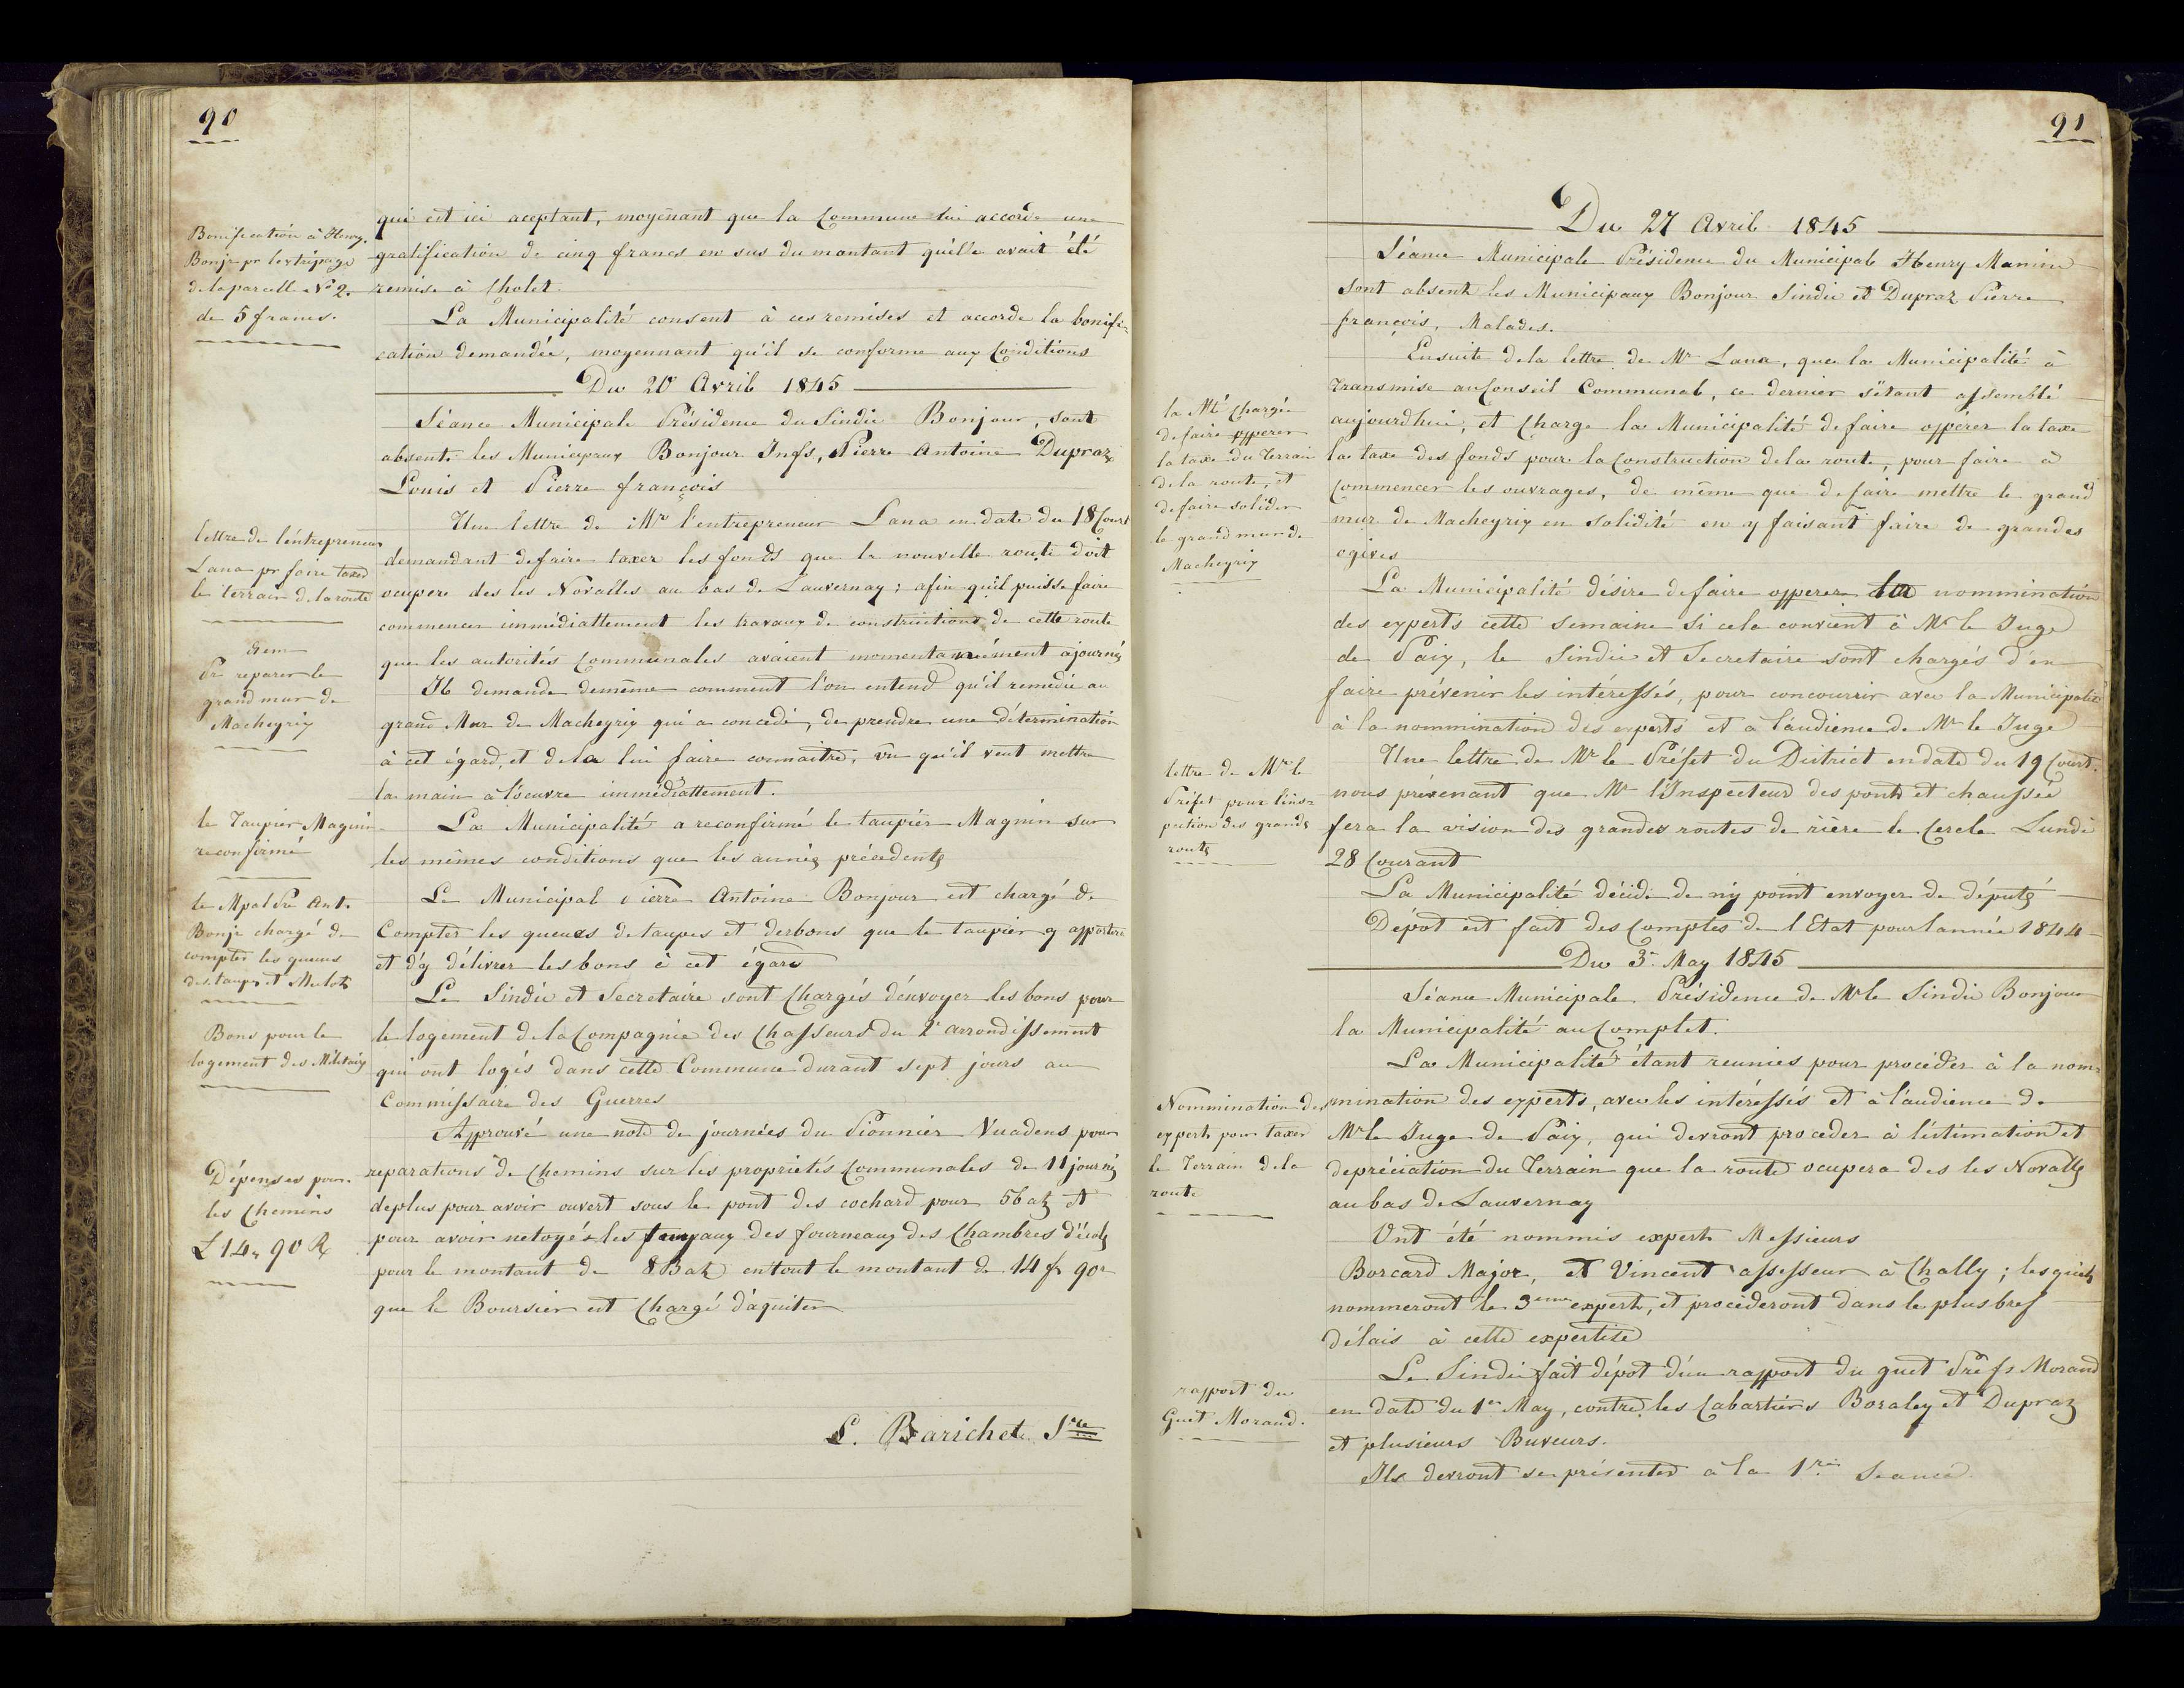 90
Bonification à Henry.
Bonjr pr lextripage
de la parcell N° 2.
de 5 francs.
qui est ici aceptant, moyénant que la Commune lui accorde une
gratification de cinq francs en sus du montant qu'elle avait été
remise à Cholet.
La Municipalité consent à ces remises et accorde la bonifi-
cation demandée, moyennant qu'il se conforme aux Conditions
Du 20 Avril 1845
Séance Municipale Présidence du Sindic Bonjour, sont
absents les Municipaux Bonjour Jnfs, Pierre Antoine Dupraz
Louis et Pierre françois
lettre de l'entrepreneur
Lana pr faire taxed
le terrain de la route
Une lettre de Mr l'entrepreneur Lana en date du 18 Court
demandant de faire taxer les fonds que la nouvelle route doit
ocupere des les Novalles au bas de Lauvernay; afin qu'il puisse faire
commencer immédiattement les travaux de constructions de cette route
que les autorités Communales avaient momentanément ajournés
Item
Pr reparer le
grand mur de
Macheyrix
Il demande demême comment l'on entend qu'il remédie au
grand Mur de Macheyrix qui a concedé, de prendre une détermination
à cet égard, et de la lui faire connaitre, vu qu'il veut mettre
la main à l'oeuvre immédiattement.
le Taupier Magnin
reconfirmé
La Municipalité a reconfirmé le taupier Magnin sur
les mêmes conditions que les années précedents
le Mpal Pre Ant.
Bonjr chargé de
compter les queues
des taups et Mulots
Le Municipal Pierre Antoine Bonjour est chargé de
Compter les queues de taupes et derbons que le taupier y apportera
et d'y délivrer les bons à cet égard
Bons pour le
logement des Militairs
Le Sindic et Secretaire sont Chargés d'envoyer les bons pour
le logement de la Compagnie des Chasseurs du 2e arrondissement
qui ont logés dans cette Commune durant sept jours au
Commissaire des Guerres
Dépenses pour
les Chemins
£ 14,, 90 Rx
Approuvé une note de journées du Pionnier Vuadens pour
reparations de Chemins sur les proprietés Communales de 11 journés
deplus pour avoir ouvert sous le pont des cochard pour 5 batz et
pour avoir netoyé les tuyaux des fourneaux des Chambres d'école
pour le montant de 8 Batz entout le montant de 14 fr 90r
que le Boursier est Chargé d'aquiter
L. Barichet Sre
91
Du 27 Avril 1845
Séance Municipale Présidence du Municipal Henry Manine
sont absent les Municipaux Bonjour Sindic et Dupraz Pierre
françois, Malades.
la Mté Chargée
de faire opperer
la taxe du Terrain
de la route, et
de faire solider
le grand mur de
Macheyrix
Ensuite de la lettre de Mr Lana, que la Municipalité à
transmise au Conseil Communal, ce dernier s'étant assemblé
aujourdhui, et Charge la Municipalité de faire opperer la taxe
la taxe des fonds pour la Construction de la route, pour faire à
Commencer les ouvrages, de même que de faire mettre le grand
mur de Macheyrix en solidité en y faisant faire de grandes
ogives
La Municipalité désire de faire opperer la nommination
des experts cette semaine si cela convient à Mr le Juge
de Paix, le Sindic et Secretaire sont chargés d'en
faire prévenir les intéressés, pour concourrir avec la Municipalité
à la nommination des experts et à l'audience de Mr le Juge
lettre de Mr le
Préfet pour l'ins-
pection des grands
routs
Une lettre de Mr le Préfet du District en date du 19 Court.
nous prévenant que Mr l'Inspecteur des ponts et chaussée
fera la vision des grandes routes de rière le Cercle Lundi
28 Courant
La Municipalité décide de n'y point envoyer de députés
Dépot est fait des Comptes de l'Etat pour l'année 1844
Du 3e May 1845
Séance Municipale Présidence de Mr le Sindic Bonjour
la Municipalité au Complet.
Nommination des
experts pour taxer
le Terrain de la
route
La Municipalité étant reunies pour procéder à la nom-
mination des experts, avec les intéressés et à l'audience de
Mr le Juge de Paix, qui devront proceder à l'estimation et
depréciation du Terrain que la route ocupera des les Novalls
au bas de Lauvernay
Ont été nommis experts Messieurs
Borcard Major, et Vincent assesseur à Chally; lesquels
nommeront le 3eme expert, et procéderont dans le plus bref
délais à cette expertise
rapport du
Guet Morand.
Le Sindic fait dépot d'un rapport du guet Prefs Morand
en date du 1er May, contre les Cabartiers Boraley et Dupraz
et plusieurs Buveurs.
Ils devront se présenter à la 1re Seance